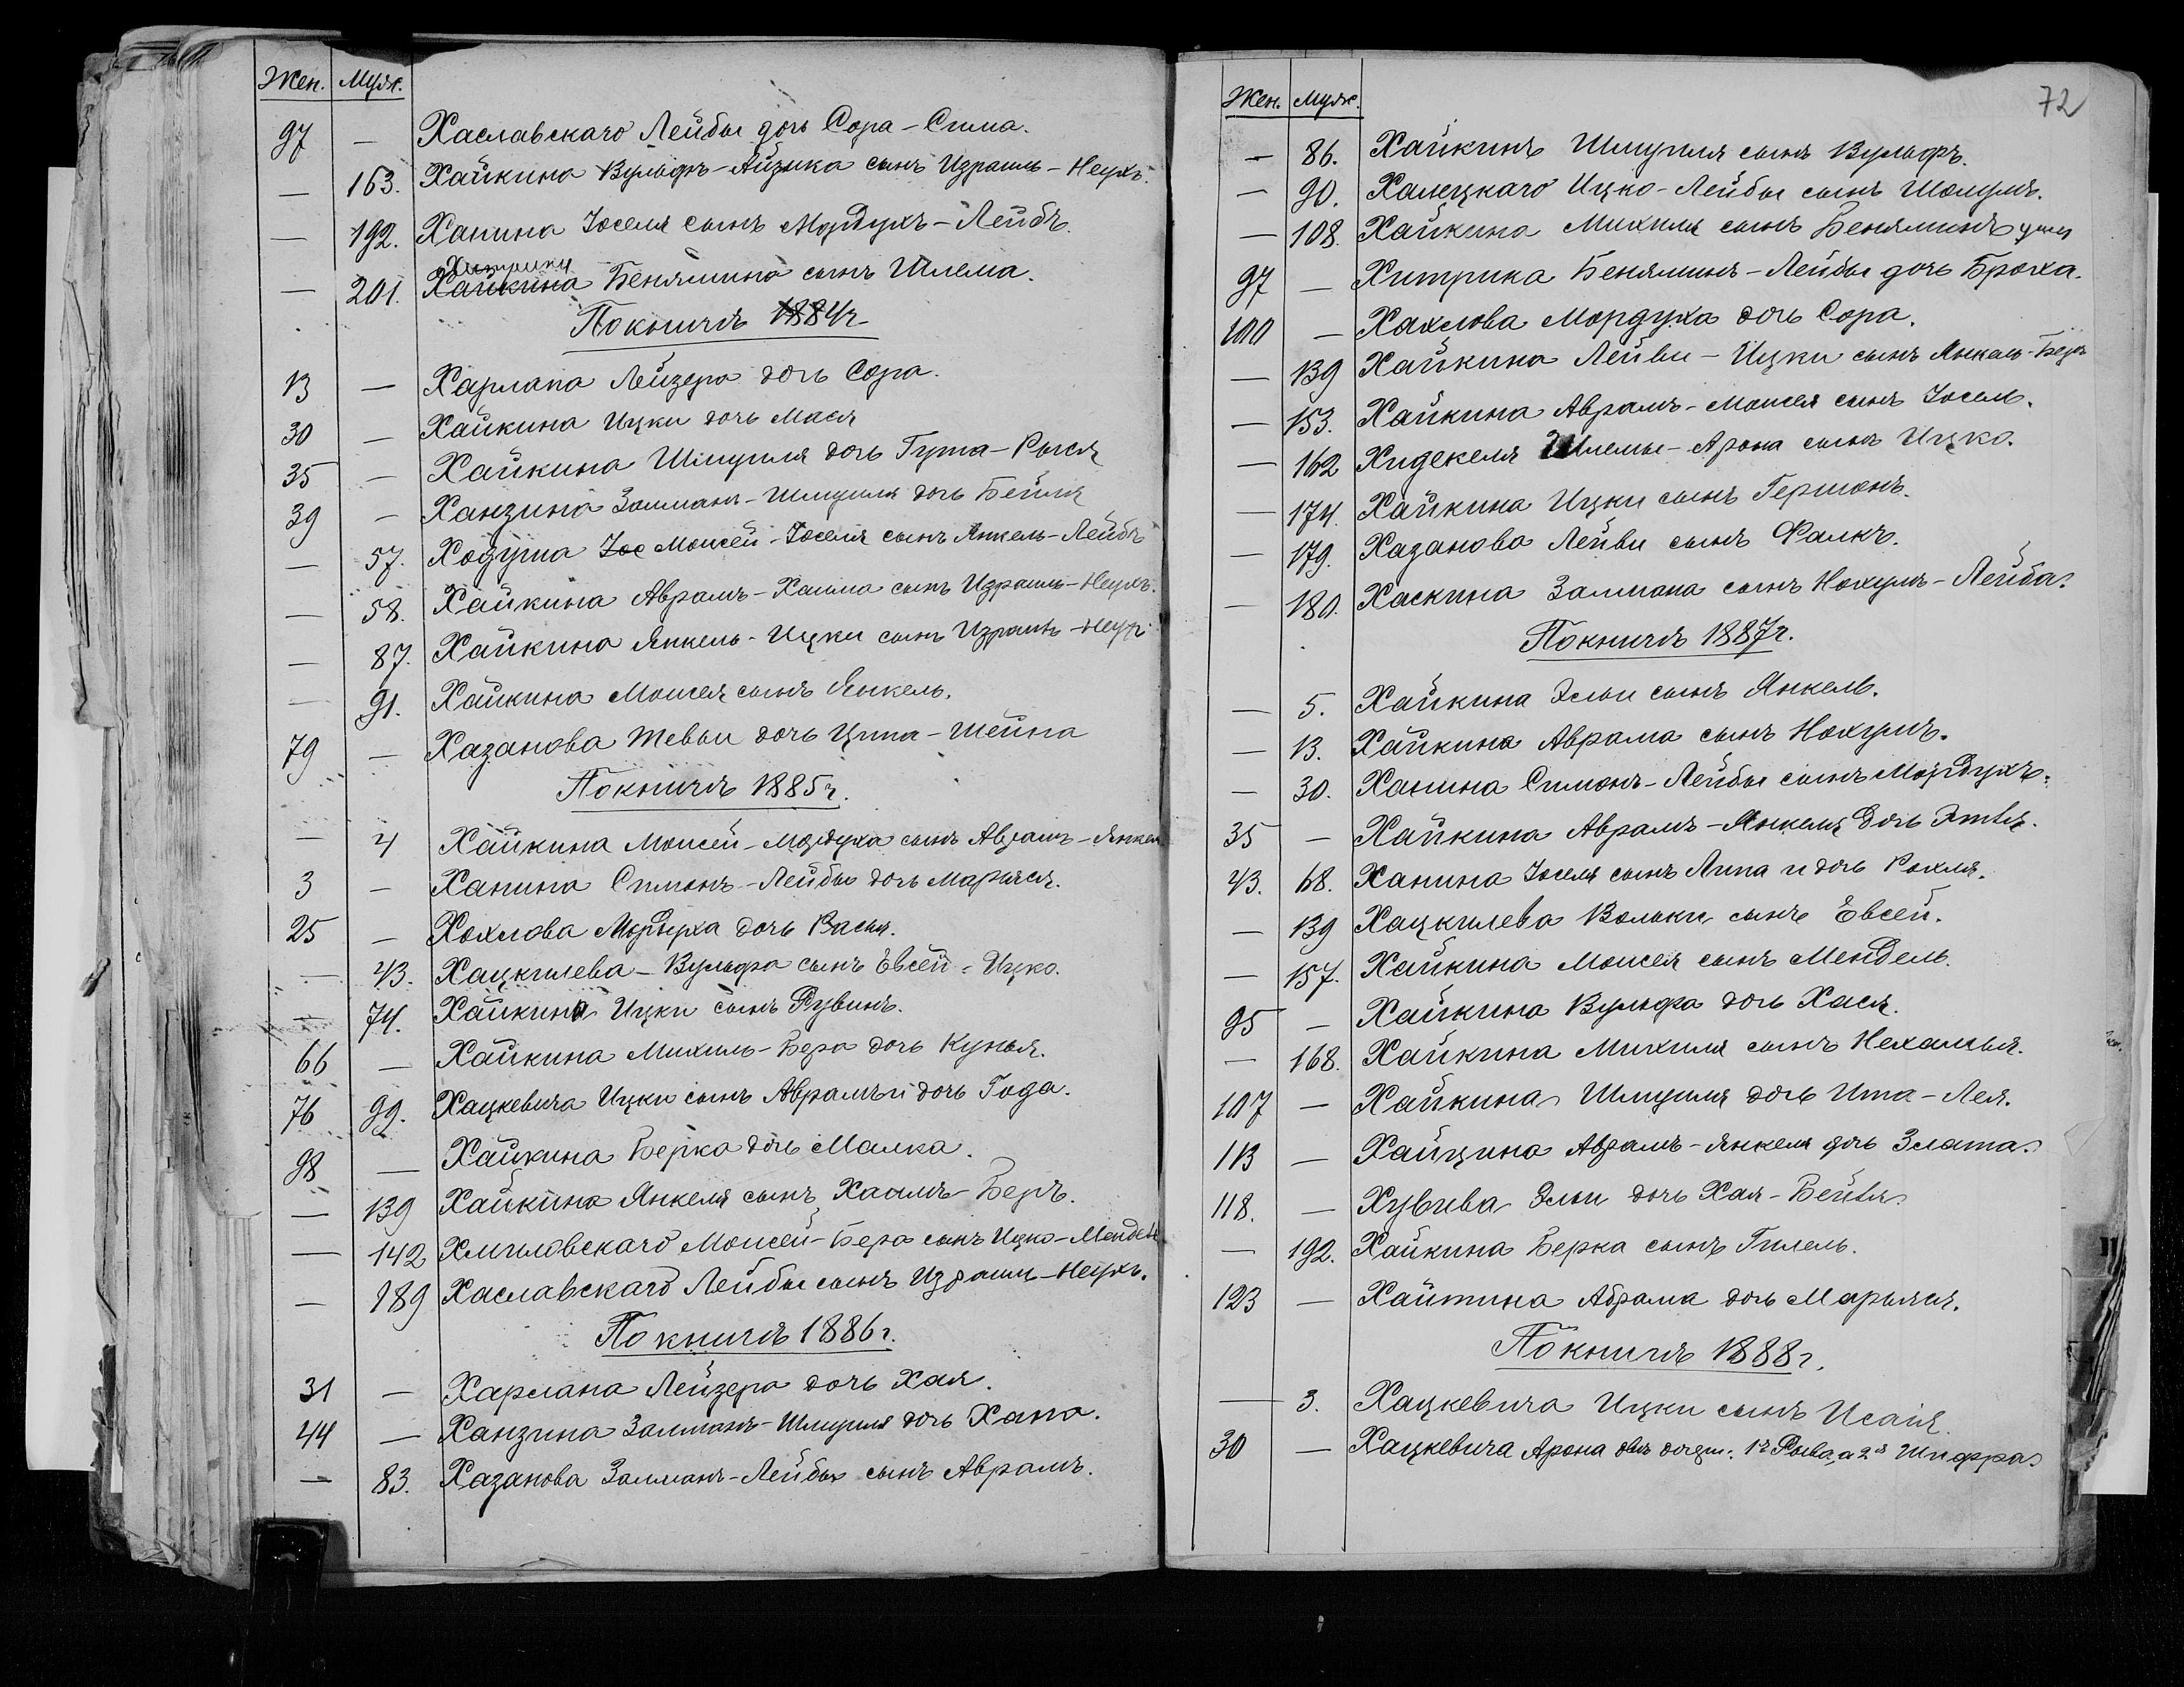 Жен. Муж.
97 — Хаславскаго Лейбы дочь Сора-Сима.
— 163. Хайкина Вульфъ-Айзика сынъ Израиль-Неухъ.
— 192. Ханина Іоселя сынъ Мордухъ-Лейбъ.
Хитрика
— 201. Хайкина Беньямина сынъ Шлема.
По книгѣ 1884 г.
13 — Харлапа Лейзера дочь Сора.
30 — Хайкина Ицки дочь Мася
35 — Хайкина Шмуиля дочь Гута-Рыся
39 — Ханзина Залманъ-Шмуиля дочь Бейля
— 57. Ходуша Іос Моисей-Іоселя сынъ Янкель-Лейбъ
— 58. Хайкина Аврамъ-Хаима сынъ Израиль-Неухъ.
— 87. Хайкина Янкель-Ицки сынъ Израиль-Неухъ
— 91. Хайкина Моисея сынъ Янкель.
79 — Хазанова Тевьи дочь Ципа-Шейна
По книгѣ 1885 г.
— 4 Хайкина Моисей-Мордуха сынъ Аврамъ-Янкель
3 — Ханина Симонъ-Лейбы дочь Марьяся.
25 — Хохлова Мордуха дочь Васья.
— 43. Хацкилева-Вульфа сынъ Евсей-Ицко.
— 74. Хайкина Ицки сынъ Рувинъ.
66 — Хайкина Михиль-Бера дочь Кунья.
76 99. Хацкевича Ицки сынъ Аврамъ и дочь Года.
98 — Хайкина Берка дочь Малка.
— 139 Хайкина Янкеля сынъ Хаимъ-Беръ.
— 142 Хмиловскаго Моисей-Бера сынъ Ицко-Мендель
— 189 Хаславскаго Лейбы сынъ Израиль-Неухъ.
По книгѣ 1886 г.
31 — Харлапа Лейзера дочь Хая.
44 — Ханзина Залманъ-Шмуиля дочь Хана.
— 83. Хазанова Залманъ-Лейбы сынъ Аврамъ.
72
Жен. Муж.
— 86. Хайкинъ Шмуиля сынъ Вульфъ.
— 90. Халецкаго Ицко-Лейбы сынъ Шолумъ.
— 108. Хайкина Михиля сынъ Беньяминъ
97 — Хитрика Беньяминъ-Лейбы дочь Броха.
100 — Хахлова Мордуха дочь Сора.
— 139 Хайкина Лейви-Ицки сынъ Янкель-Беръ
— 153. Хайкина Аврамъ-Моисея сынъ Іосель.
— 162 Хидекеля Шлемы-Арона сынъ Ицко.
— 174. Хайкина Ицки сынъ Гершонъ.
— 179. Хазанова Лейви сынъ Фалкъ.
— 180. Хаскина Залмана сынъ Нохумъ-Лейба.
По книгѣ 1887 г.
— 5. Хайкина Эльи сынъ Янкель.
— 13. Хайкина Аврама сынъ Нохумъ.
— 30. Ханина Симонъ-Лейбы сынъ Мордухъ.
35 — Хайкина Аврамъ-Янкеля дочь Этля.
43. 68. Ханина Іоселя сынъ Липа и дочь Рохля.
— 139 Хацкилева Вольки сынъ Евсей.
— 157. Хайкина Моисея сынъ Мендель.
95 — Хайкина Вульфа дочь Хася.
— 168. Хайкина Михиля сынъ Нехамья.
107 — Хайкина Шмуиля дочь Ита-Лея.
113 — Хайцина Аврамъ-Янкеля дочь Злата.
118. — Хувива Эльи дочь Хая-Бейля.
— 192. Хайкина Берка сынъ Гилель.
123 — Хайтина Абрама дочь Марьяся.
По книгѣ 1888 г.
— 3. Хацкевича Ицки сынъ Исаія.
30 — Хацкевича Арона двѣ дочери: 1я Рыва, а 2я Шифра.